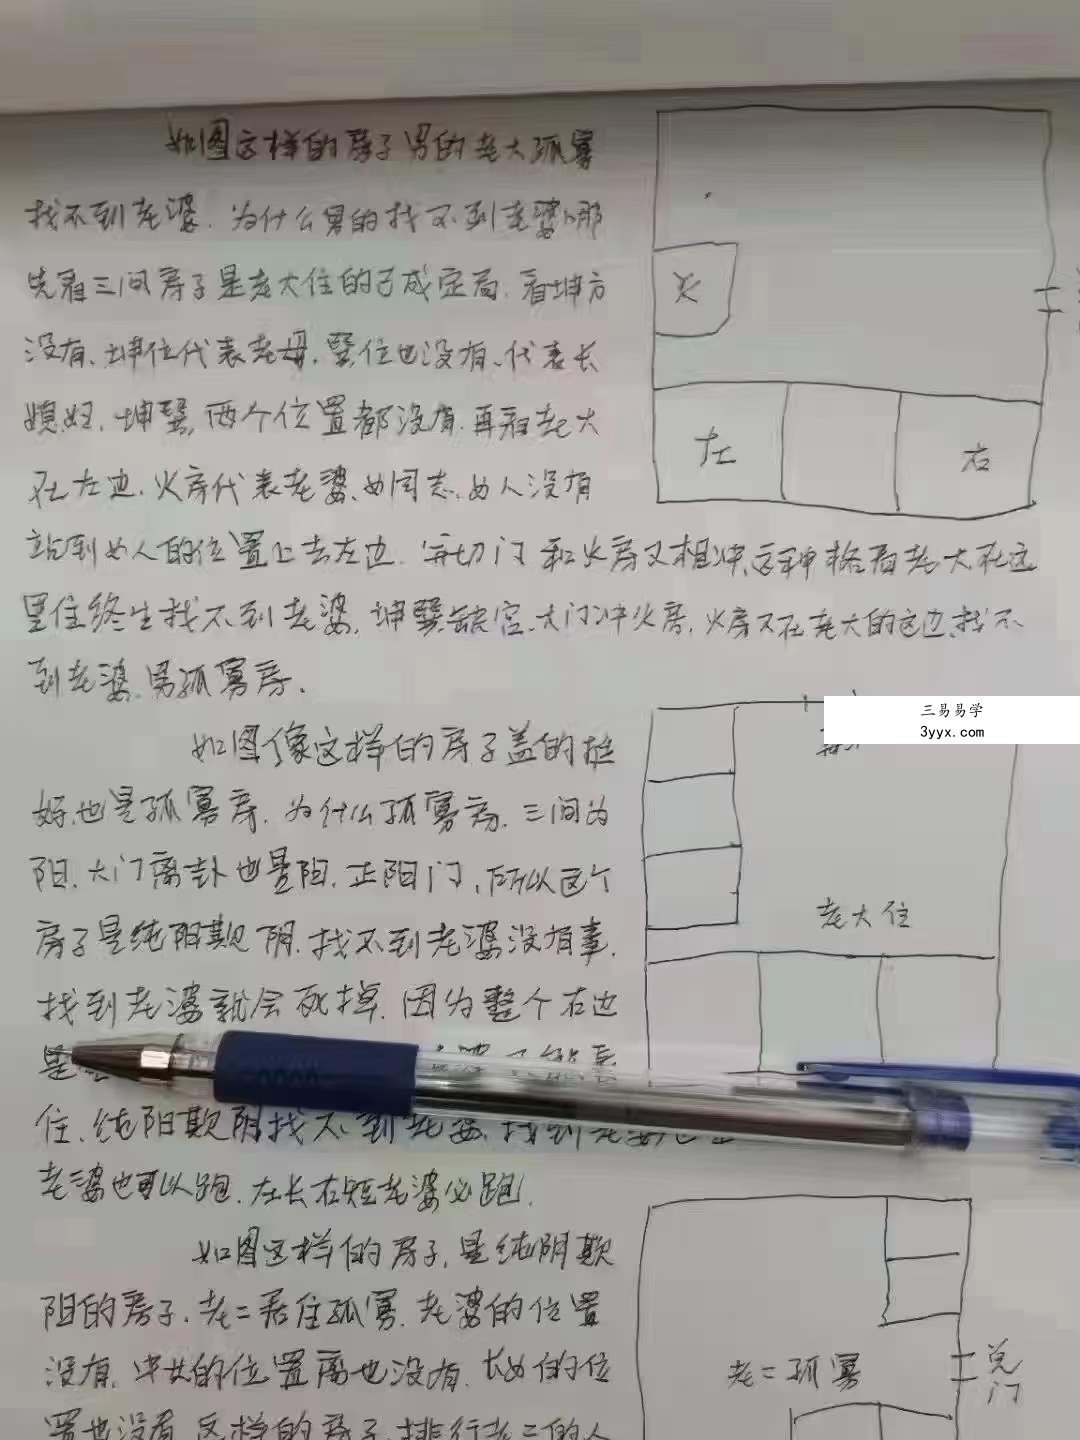 如图这样的房子男的老大孤寡
找不到老婆.为什么男的找不到老婆哪
先看三间房子是老大住的已成定局.看坤方
没有、坤位代表老母.巽位也没有、代表长
媳妇.坤巽,两个位置都没有.再看老大
在左边.火房代表老婆、女同志、女人没有
站到女人的位置上去左边.再切门和火房又相冲、这种格局老大在这
里住终生找不到老婆.坤巽缺宫、大门冲火房.火房不在老大的这边、找不
到老婆.男孤寡房.
火
左
右
如图像这样的房子盖的挺
好.也是孤寡房.为什么孤寡房.三间为
阳.大门离卦也是阳.正阳门,所以这个
房子是纯阳欺阴.找不到老婆没有事.
找到老婆就会死掉.因为整个右边
是
住.纯阳欺阴找不到老婆.找到老婆
老婆也可以跑.左长右短老婆必跑.
三易易学
3yyx.com
老大住
如图这样的房子.是纯阴欺
阳的房子.老二居住孤寡.老婆的位置
没有.中女的位置离也没有.长女的位
置也没有.这样的房子.排行老二的人
老二孤寡
兑
门